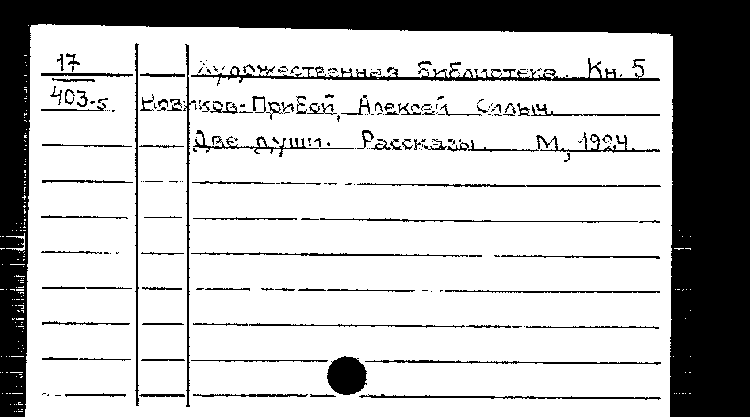 17 Художественная библиотека. Кн. 5
403-5 Новиков-Прибой, Алексей Силыч.
Две души. Рассказы. М., 1924.